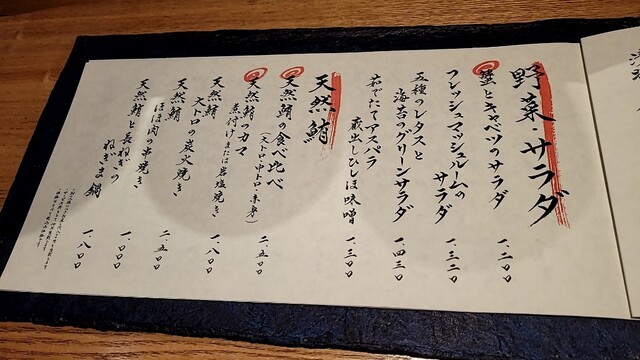 野菜・サラダ
蟹とキャベツのサラダ 一、二〇〇
フレッシュマッシュルームの
サラダ 一、三二〇
五種のレタスと
海苔のグリーンサラダ 一、四三〇
茹でたてアスパラ
蔵出しひしほ味噌 一、三〇〇
天然鮪
天然鮪の食べ比べ
(大トロ・中トロ・赤身) 二、五〇〇
天然鮪のカマ
煮付けまたは岩塩焼き 一、八〇〇
天然鮪
大トロの炭火焼き 二、五〇〇
天然鮪
ほほ肉の串焼き 一、〇〇〇
天然鮪と長ねぎの
ねぎま鍋 一、八〇〇